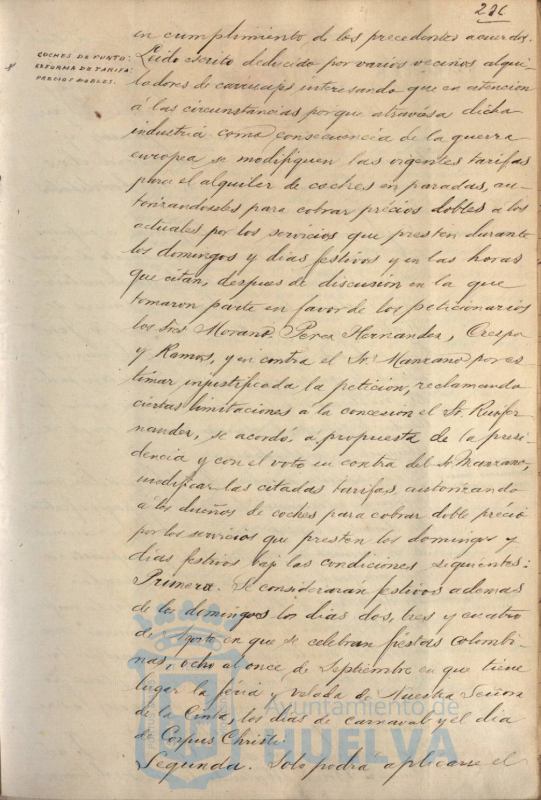 226
en cumplimiento de los precedentes acuerdos.
COCHES DE PUNTO:
REFORMA DE TARIFA:
PRECIOS DOBLES.
Leido escrito deducido por varios vecinos alqui-
ladores de carruajes interesando que en atencion
á las circunstancias porque atraviesa dicha
industria como consecuencia de la guerra
europea se modifiquen las vigentes tarifas
para el alquiler de coches en paradas, au-
torizandoseles para cobrar précios dobles a los
actuales por los servicios que presten durante
los domingos y dias festivos y en las horas
que citan, despues de discusion en la que
tomaron parte en favor de los peticionarios
los Sres Morano, Perez Hernandez, Crespo
y Ramos, y en contra el Sr. Manzano por es
timar injustificada la petición, reclamando
ciertas limitaciones a la concesion el Sr. Ruifer-
nandez, se acordó, á propuesta de la presi-
dencia y con el voto en contra del Sr. Manzano,
modificar las citadas tarifas autorizando
a los dueños de coches para cobrar doble précio
por los servicios que presten los domingos y
dias festivos bajo las condiciones siguientes:
Primera. Se considerarán festivos ademas
de los domingos los dias dos, tres y cuatro
de Agosto en que se celebran fiestas Colombi-
nas, ocho al once de Septiembre en que tiene
lugar la féria y velada de Nuestra Señora
de la Cinta, los dias de carnaval y el dia
de Corpus Christi.
Segunda. Solo podrá aplicarse el
Ayuntamiento de
HUELVA